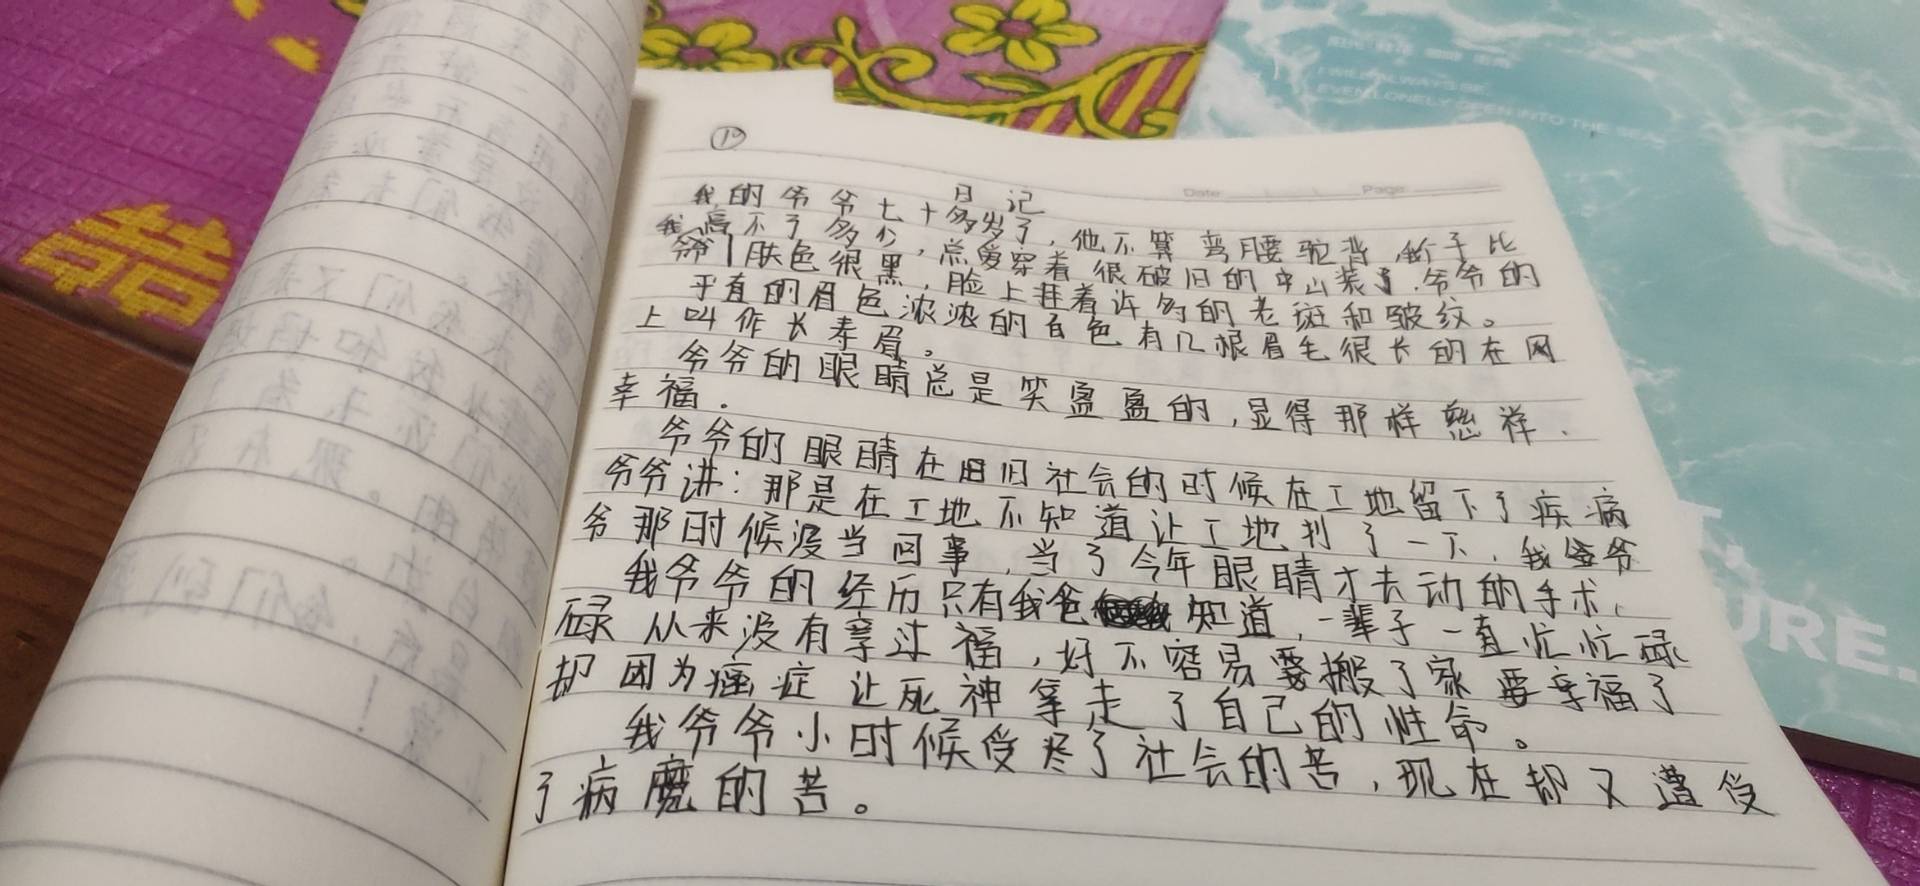 ⑩
Date
Page
日记
我的爷爷七十多岁了,他不算弯腰驼背,个子比
我高不了多少,总爱穿着很破旧的中山装,爷爷的
爷爷肤色很黑,脸上挂着许多的老斑和皱纹。
平直的眉色浓浓的百色有几根眉毛很长的在网
上叫作长寿眉。
爷爷的眼睛总是笑盈盈的,显得那样慈祥、
幸福.
爷爷的眼睛在旧社会的时候在工地留下了疾病
爷爷讲:那是在工地不知道让工地刋了一下,我爷
爷那时候没当回事,当了今年眼睛才去动的手术,
我爷爷的经历只有我爸知道,一辈子一直忙忙碌
碌从来没有享过福,好不容易要搬了家要幸福了
却因为癌症让死神拿走了自己的性命。
我爷爷小时候受尽了社会的苦,现在却又遭受
了病魔的苦。
I WILL ALWAYS BE
EVEN LONELY OPEN INTO THE SEA
URE.